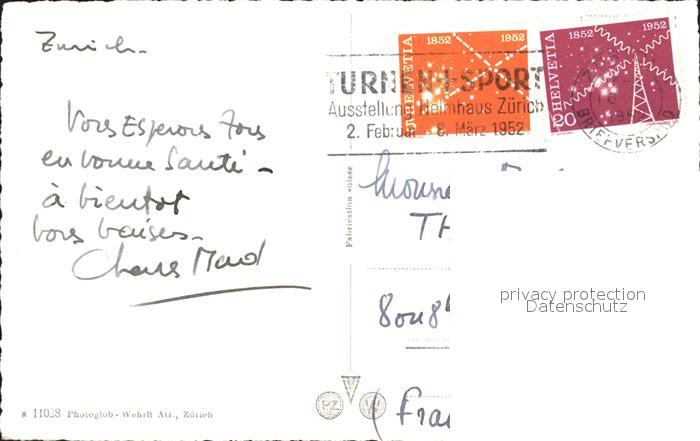 Zurich.
Vous Esperons Tous
en bonne Santé -
à bientot
bons baisers.
1852 1952
HELVETIA
1852 1952
HELVETIA
20
TURNEN + SPORT
Ausstellung Helmhaus Zürich
2. Februar - 8. März 1952
BRIEFVERSAND
Fabrication suisse
privacy protection
Datenschutz
PZ W
a 11038 Photoglob-Wehrli AG., Zürich